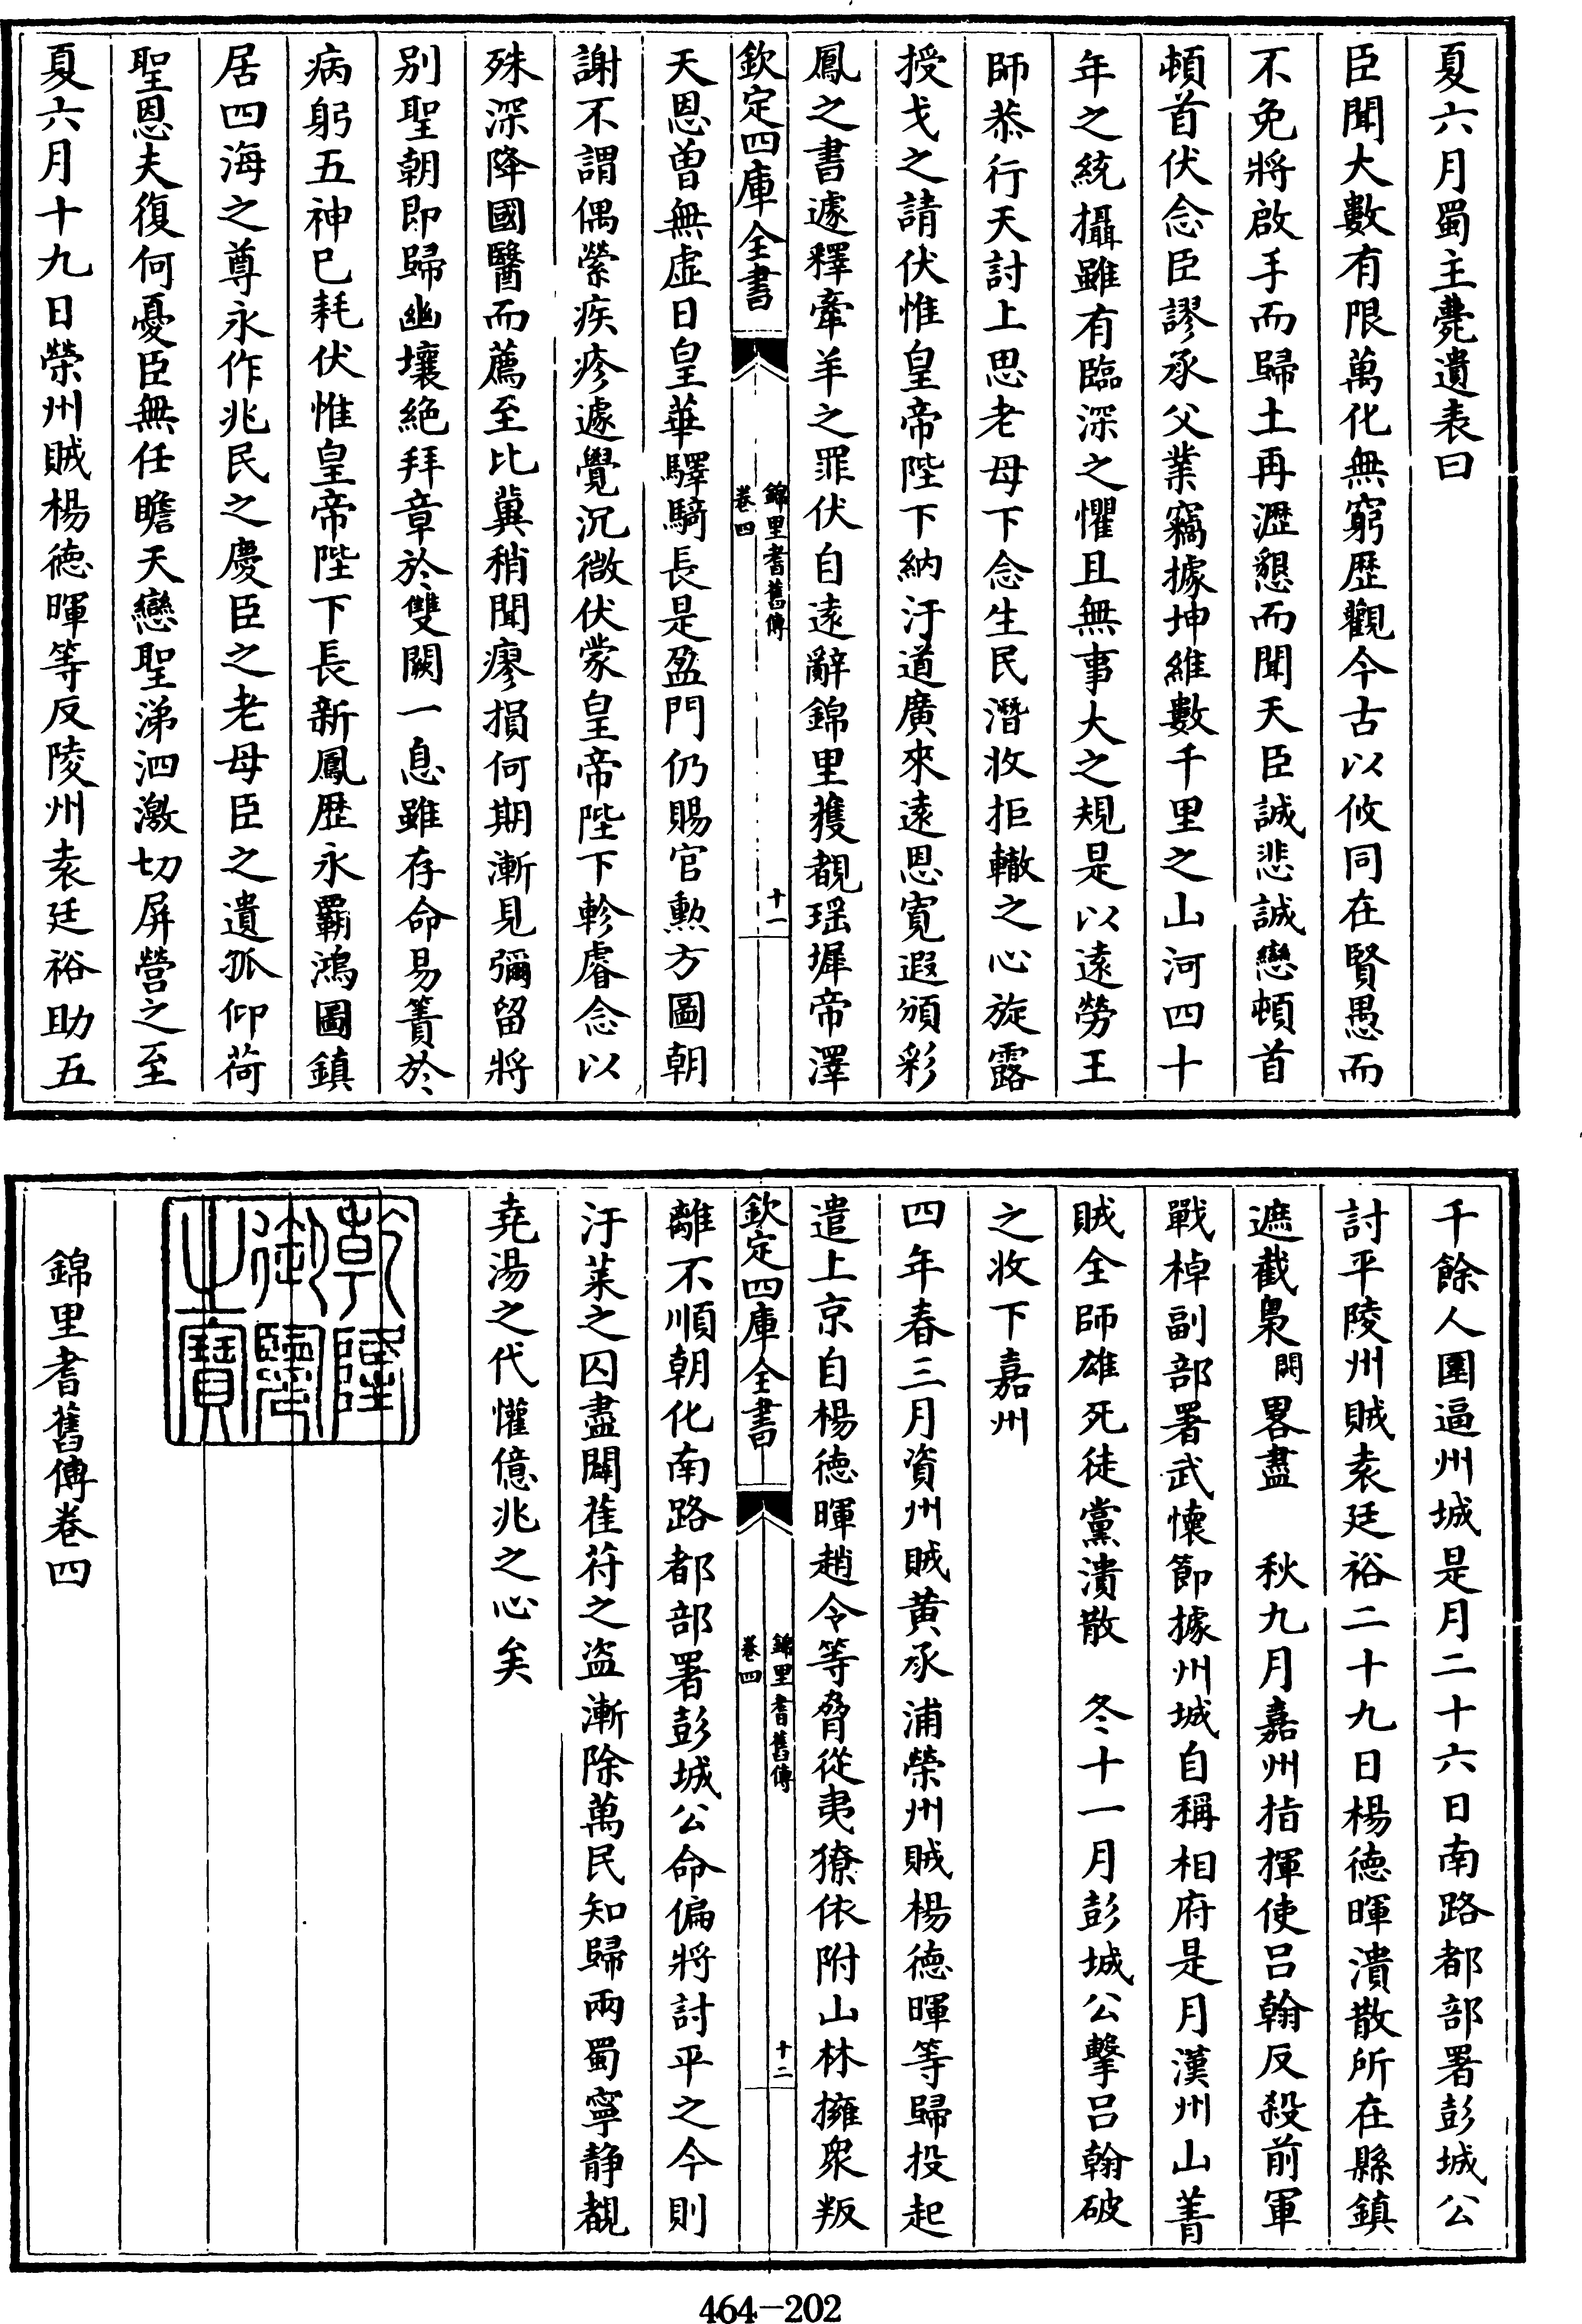 夏六月蜀主薨遺表曰
臣聞大數有限萬化無窮歴觀今古以攸同在賢愚而
不免將啟手而歸土再瀝懇而聞天臣誠悲誠戀頓首
頓首伏念臣謬承父業竊據坤維數千里之山河四十
年之統攝雖有臨深之懼且無事大之規是以遠勞王
師恭行天討上思老母下念生民潛收拒轍之心旋露
授戈之請伏惟皇帝陛下納汙道廣來遠恩寛遐頒彩
鳳之書遽釋牽羊之罪伏自遠辭錦里獲覩瑶墀帝澤
欽定四庫全書
錦里耆舊傳
卷四
十一
天恩曽無虚日皇華驛騎長是盈門仍賜官勲方圖朝
謝不謂偶縈疾疹遽覺沉微伏蒙皇帝陛下軫睿念以
殊深降國醫而薦至比冀稍聞瘳損何期漸見彌留將
别聖朝即歸幽壤絶拜章於雙闕一息雖存命易簀於
病躬五神已耗伏惟皇帝陛下長新鳳歴永覇鴻圖鎮
居四海之尊永作兆民之慶臣之老母臣之遺孤仰荷
聖恩夫復何憂臣無任瞻天戀聖涕泗激切屏營之至
夏六月十九日榮州賊楊徳暉等反陵州袁廷裕助五
千餘人圍逼州城是月二十六日南路都部署彭城公
討平陵州賊袁廷裕二十九日楊徳暉潰散所在縣鎮
遮截梟闕畧盡　秋九月嘉州指揮使吕翰反殺前軍
戰棹副部署武懷節據州城自稱相府是月漢州山菁
賊全師雄死徒黨潰散　冬十一月彭城公擊吕翰破
之收下嘉州
四年春三月資州賊黄承浦榮州賊楊徳暉等歸投起
遣上京自楊徳暉趙令等脅從夷獠依附山林擁衆叛
欽定四庫全書
錦里耆舊傳
卷四
十二
離不順朝化南路都部署彭城公命偏將討平之今則
汙萊之囚盡闢萑苻之盗漸除萬民知歸兩蜀寧静覩
堯湯之代懽億兆之心矣
乾隆御覽之寶
錦里耆舊傳卷四
464-202